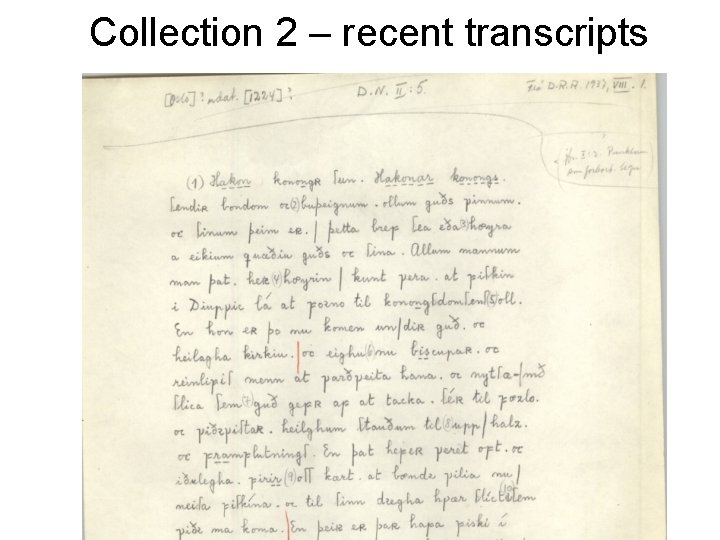 Collection 2 – recent transcripts
[Oslo]? udat. [1224]? D.N. II:5. Fra D.R.R. 1937, VIII. 1.
jfr. I:2.
(1) Hakon konongR ſun. Hakonar konongs.
ſendiR bondom oc(2)buþeignum. ollum guðs ƿinnum.
oc ſinum þeim eR. | þetta breꝼ ſea eða(3)hœyra
a eikium quæðiu guðs oc ſina. Allum mannum
man þat. heR(4)hœyrin | kunt ƿera. at ꝼiſkin
i Diupƿic lá at ꝼorno til konongſdomſenſ(5)oll.
En hon eR þo nu komen un|diR guð. oc
heilagha kirkiu.|oc eighu(6)nu biscupar. oc
reinliꝼiſ menn at ƿarðƿeita hana. oc nytſæ=|mð
ſlica ſem(7)guð geꝼR aꝼ at taka. ſér til ꝼœzlo.
oc ƿiðrƿiſtar. heilghum ſtauðum til(8)upp|halz.
oc ꝼramꝼlutningſ. En þat heꝼeR ƿeret oꝼt. oc
iðulegha. ꝼiriR(9)oſſ kart. at bœndr ƿilia nu|
neiſa ꝼiſkina. oc til ſinn dregha hƿær ſlict(10)ſem
ƿiðr ma koma.|En þeiR eR ƿaR haꝼa ꝼiski í